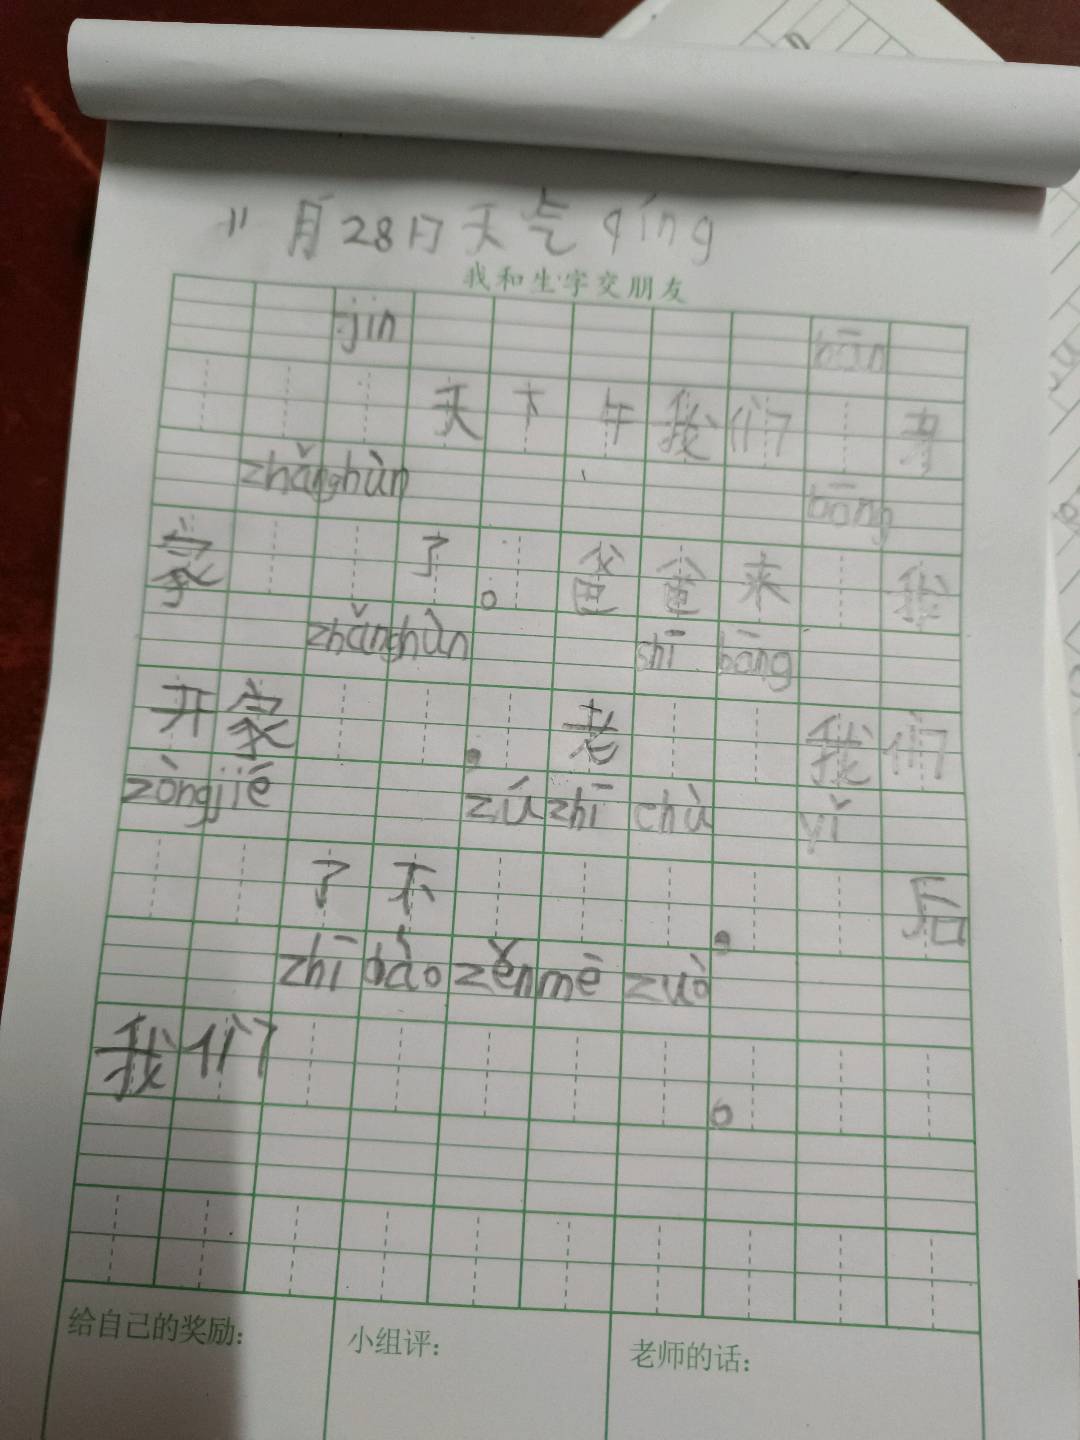 11月28日天气qíng
我和生字交朋友
jīn bān
天下午我们 考
zhǎnghùn bāng
家 了。爸爸来 我
zhǎnghùn shī bāng
开家 ,老 我们
zòngjiē zú zhī chù yǐ
了不 ,后
zhī dào zěn mē zuò
我们 。
给自己的奖励:
小组评:
老师的话: